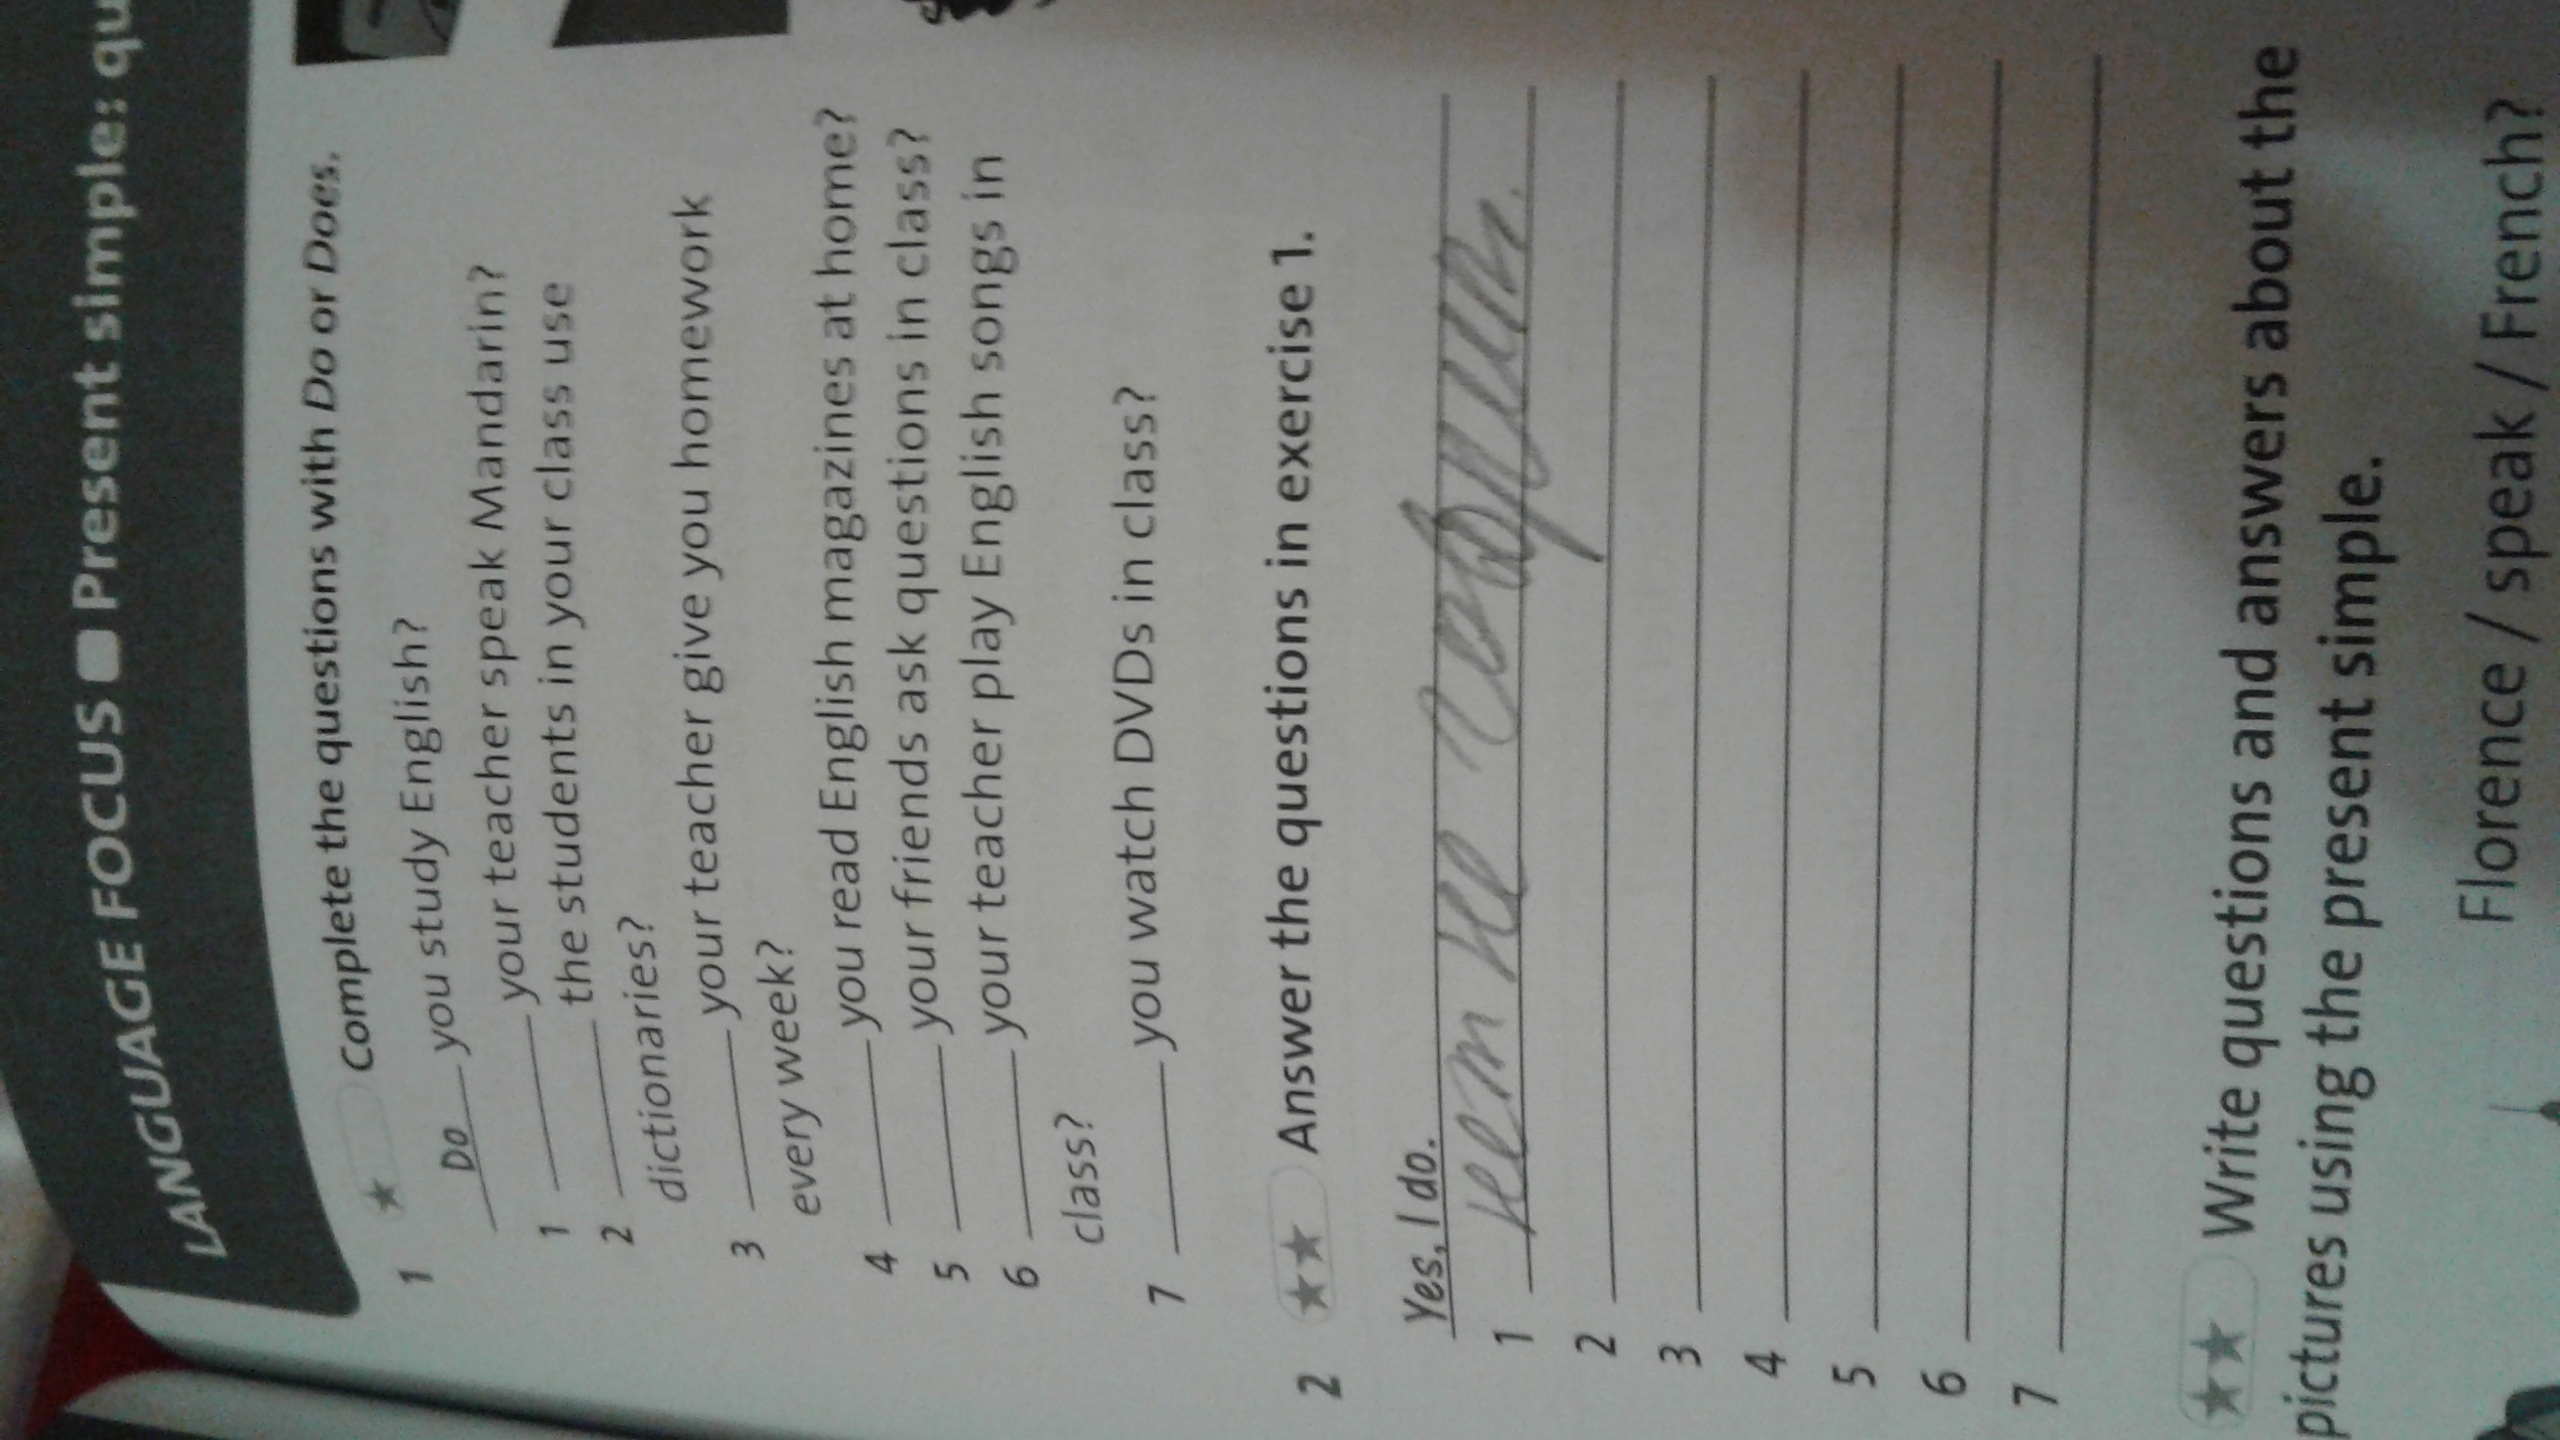 LANGUAGE FOCUS ■ Present simple: qu
1 ★ Complete the questions with Do or Does.
Do you study English?
1 ______ your teacher speak Mandarin?
2 ______ the students in your class use
dictionaries?
3 ______ your teacher give you homework
every week?
4 ______ you read English magazines at home?
5 ______ your friends ask questions in class?
6 ______ your teacher play English songs in
class?
7 ______ you watch DVDs in class?
2 ★★ Answer the questions in exercise 1.
Yes, I do.
1
2
3
4
5
6
7
★★ Write questions and answers about the
pictures using the present simple.
Florence / speak / French?